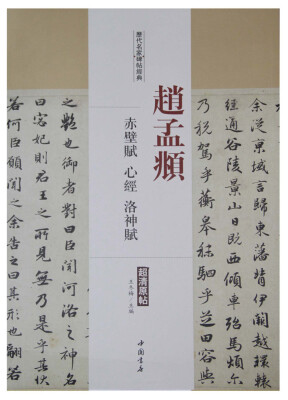 余從京域言歸東藩背伊闕越轘轅
經通谷陵景山日既西傾車殆馬煩尔
乃稅駕乎蘅皋秣駟乎芝田容與
歷代名家碑帖經典
趙孟頫
赤壁賦 心經 洛神賦
超清原帖
王冬梅 主編
中國書店
之艷也御者對曰臣聞河洛之神名
曰宓妃則君王之所見無乃是乎其狀
若何臣願聞之余告之曰其形也翩若